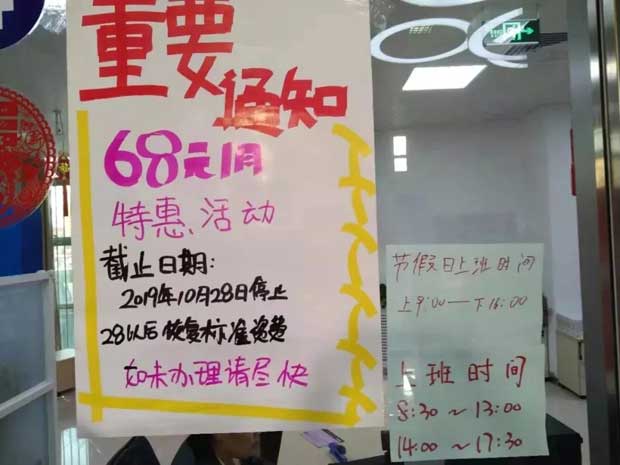 重要通知
68元1月
特惠、活动
截止日期:
2019年10月28日停止
28号以后恢复标准资费
如未办理请尽快
节假日上班时间
上9:00—下16:00
上班时间
8:30~13:00
14:00~17:30